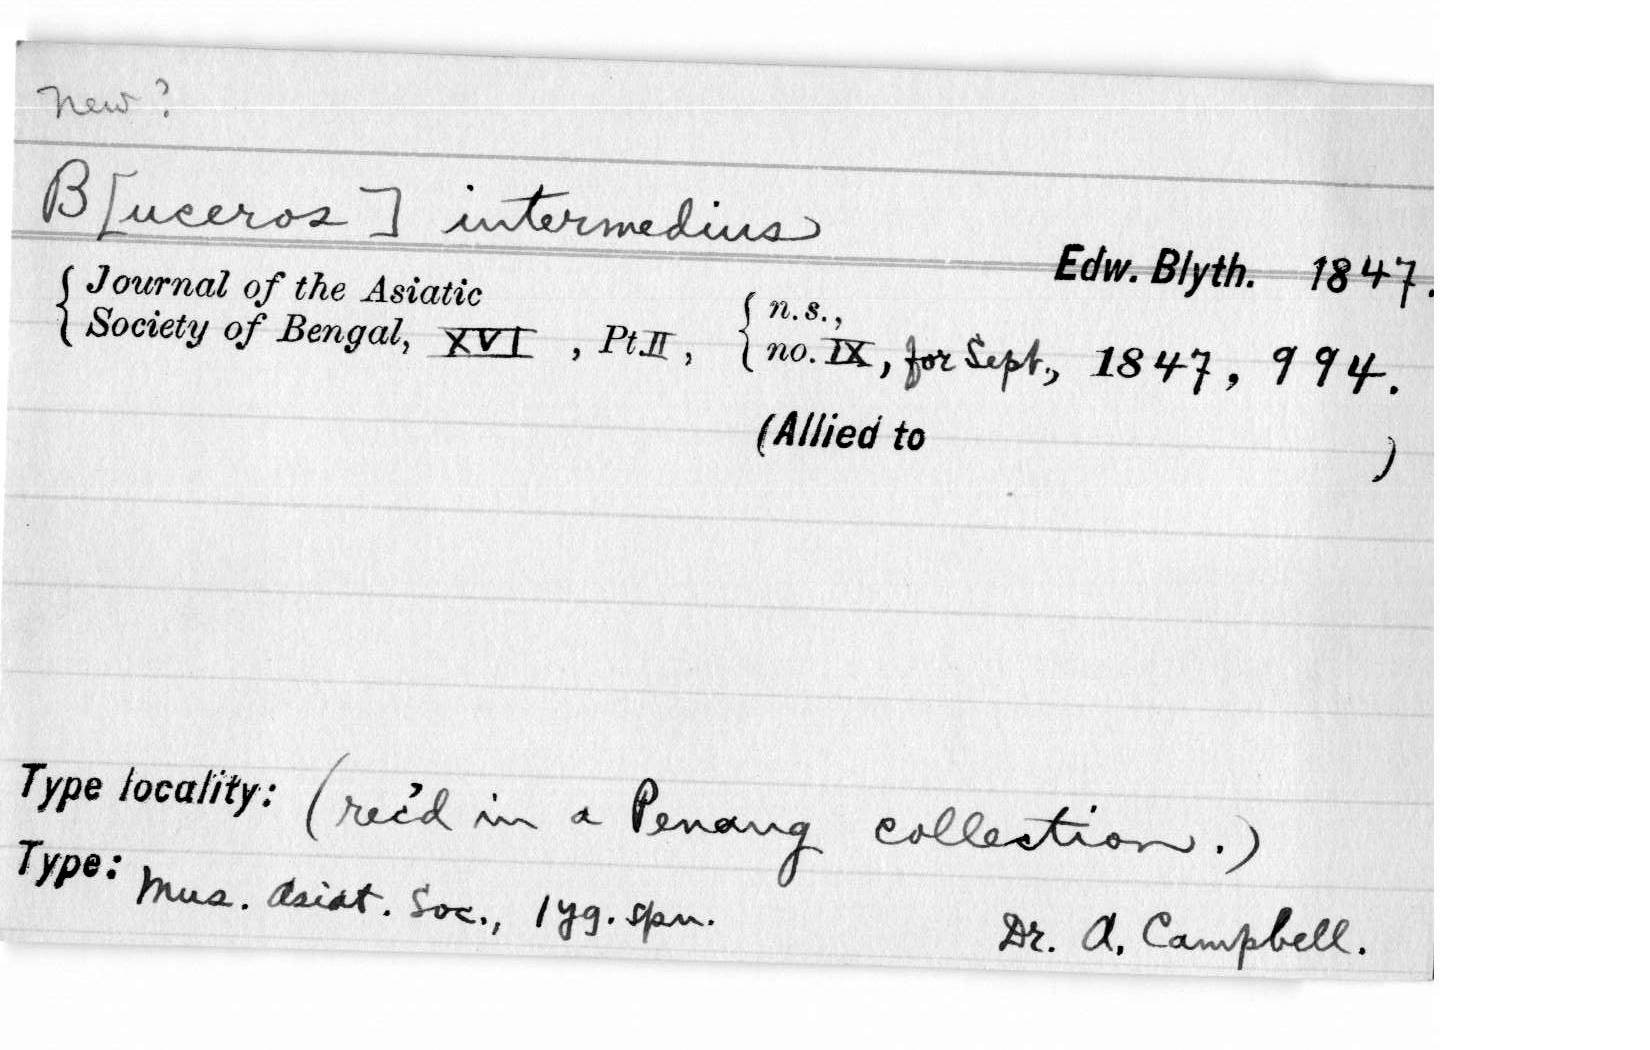 New?
B[uceros] intermedius
Edw. Blyth. 1847.
{ Journal of the Asiatic
{ Society of Bengal, XVI, Pt II, { n.s., no. IX, for Sept., 1847, 994.
(Allied to )
Type locality: (rec'd in a Penang collection.)
Type: Mus. Asiat. Soc., 1 yg. spn.
Dr. A. Campbell.